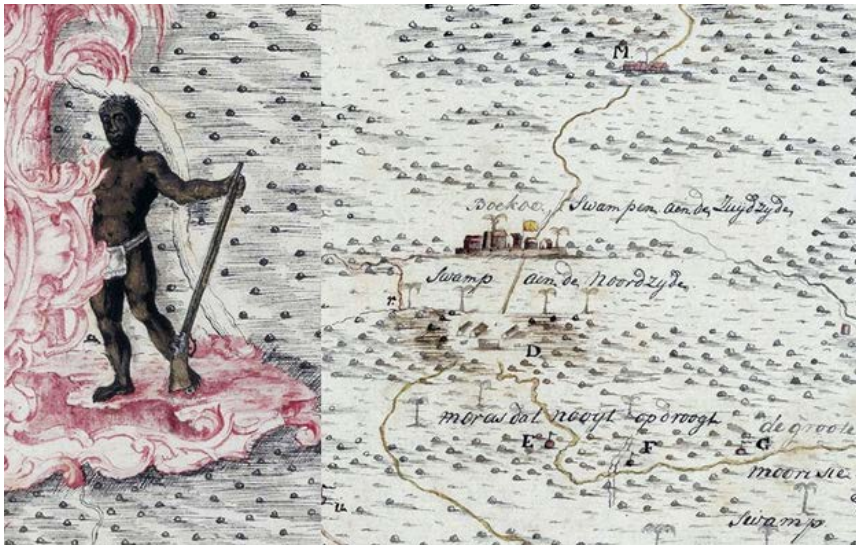 M.
Boekoe. Swampen aen de Zuydzyde
Swamp aen de Noordzyde
r.
D
moras dat nooyt opdroogt
de groote
E
F
G
moorisse
swamp